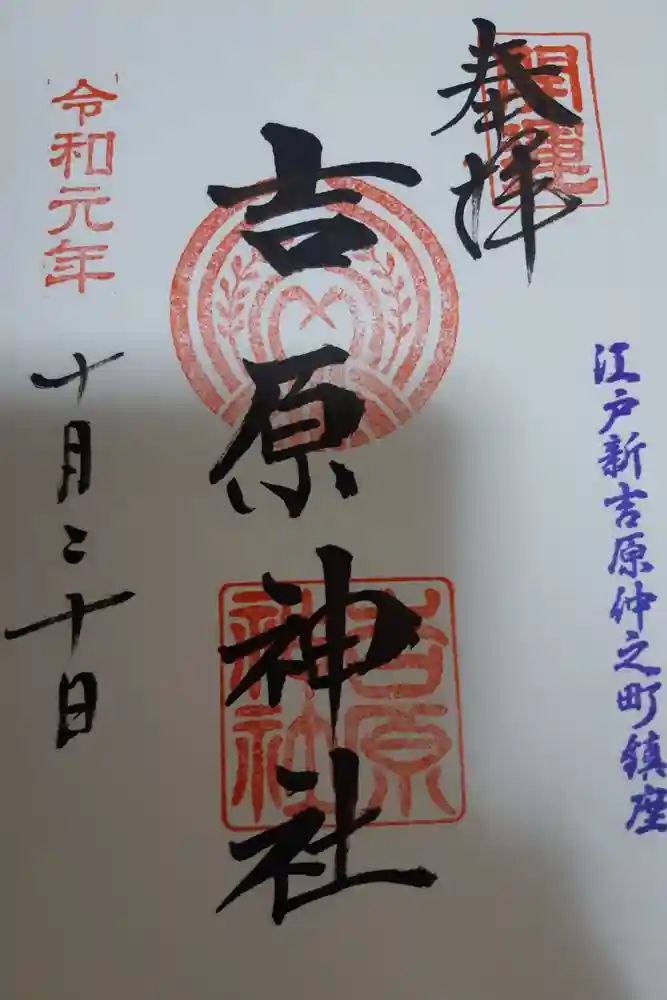 開運
奉拝
江戸新吉原仲之町鎮座
吉原神社
吉原
神社
令和元年
十月二十日